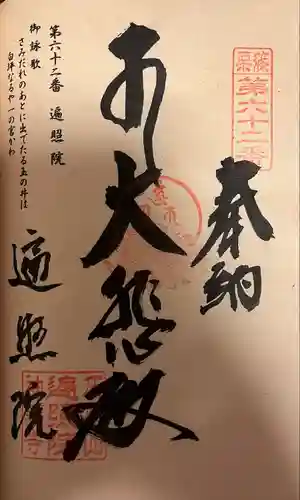 篠栗
第六十二番
奉納
大悲殿
第六十二番 遍照院
御詠歌
さみだれのあとに出でたる玉の井は
白坪なるや一の宮かわ
遍照院